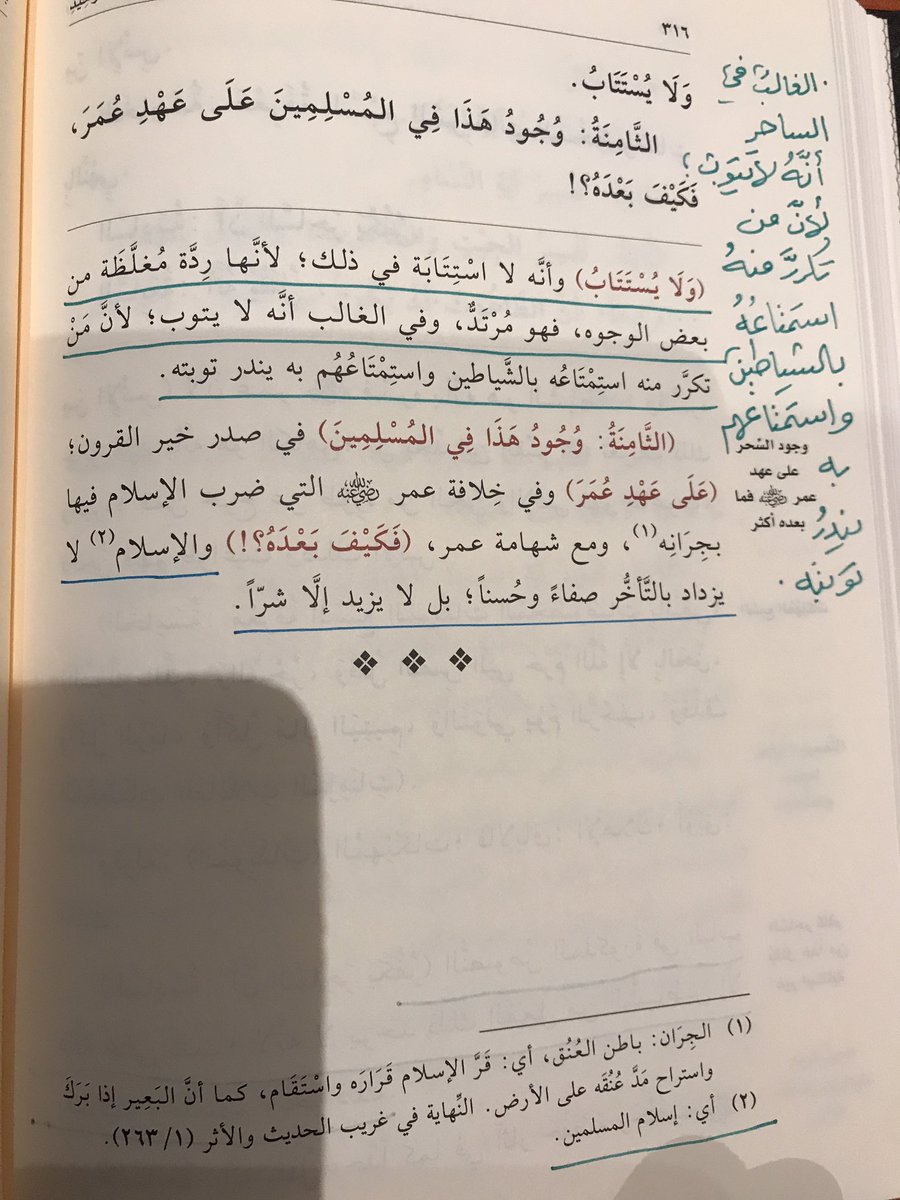 ٣١٦
وَلَا يُسْتَتَابُ.
الثَّامِنَةُ: وُجُودُ هَذَا فِي المُسْلِمِينَ عَلَى عَهْدِ عُمَرَ،
فَكَيْفَ بَعْدَهُ؟!
(وَلَا يُسْتَتَابُ) وأنَّه لا اسْتِتَابَة في ذلك؛ لأنَّها رِدَّة مُغلَّظَة من
بعض الوجوه، فهو مُرْتَدٌّ، وفي الغالب أنَّه لا يتوب؛ لأنَّ مَنْ
تكرَّر منه استِمْتَاعُه بالشَّياطين واستِمْتَاعُهُم به يندر توبته.
(الثَّامِنَةُ: وُجُودُ هَذَا فِي المُسْلِمِينَ) في صدر خير القرون؛
(عَلَى عَهْدِ عُمَرَ) وفي خِلافة عمر رضي الله عنه التي ضرب الإسلام فيها
بجِرَانِه(١)، ومع شهامة عمر، (فَكَيْفَ بَعْدَهُ؟!) والإسلام(٢) لا
يزداد بالتَّأخُّر صفاءً وحُسناً؛ بل لا يزيد إلَّا شرّاً.
وجود السِّحر
على عهد
عمر رضي الله عنه فما
بعده أكثر
الغالبُ في
الساحر
أنَّهُ لا يَتوب؛
لأنَّ من
تكررَّ منهُ
استمتاعُهُ
بالشياطين
واستمتاعهم
به
يندرُ
توبته.
(١) الجِرَان: باطن العُنُق، أي: قَرَّ الإسلام قَرَارَه واسْتَقَام، كما أنَّ البَعِير إذا بَرَكَ
واستراح مَدَّ عُنُقَه على الأرض. النِّهاية في غريب الحديث والأثر (٢٦٣/١).
(٢) أي: إسلام المسلمين.